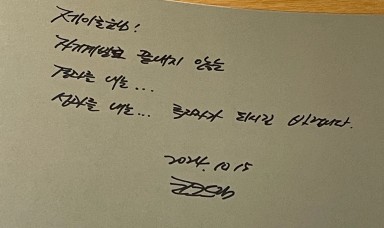 제이크님!
자기계발로 끝내지 않는
결과를 내는...
성과를 내는... 투자자가 되시길 바랍니다.
2024. 10. 15